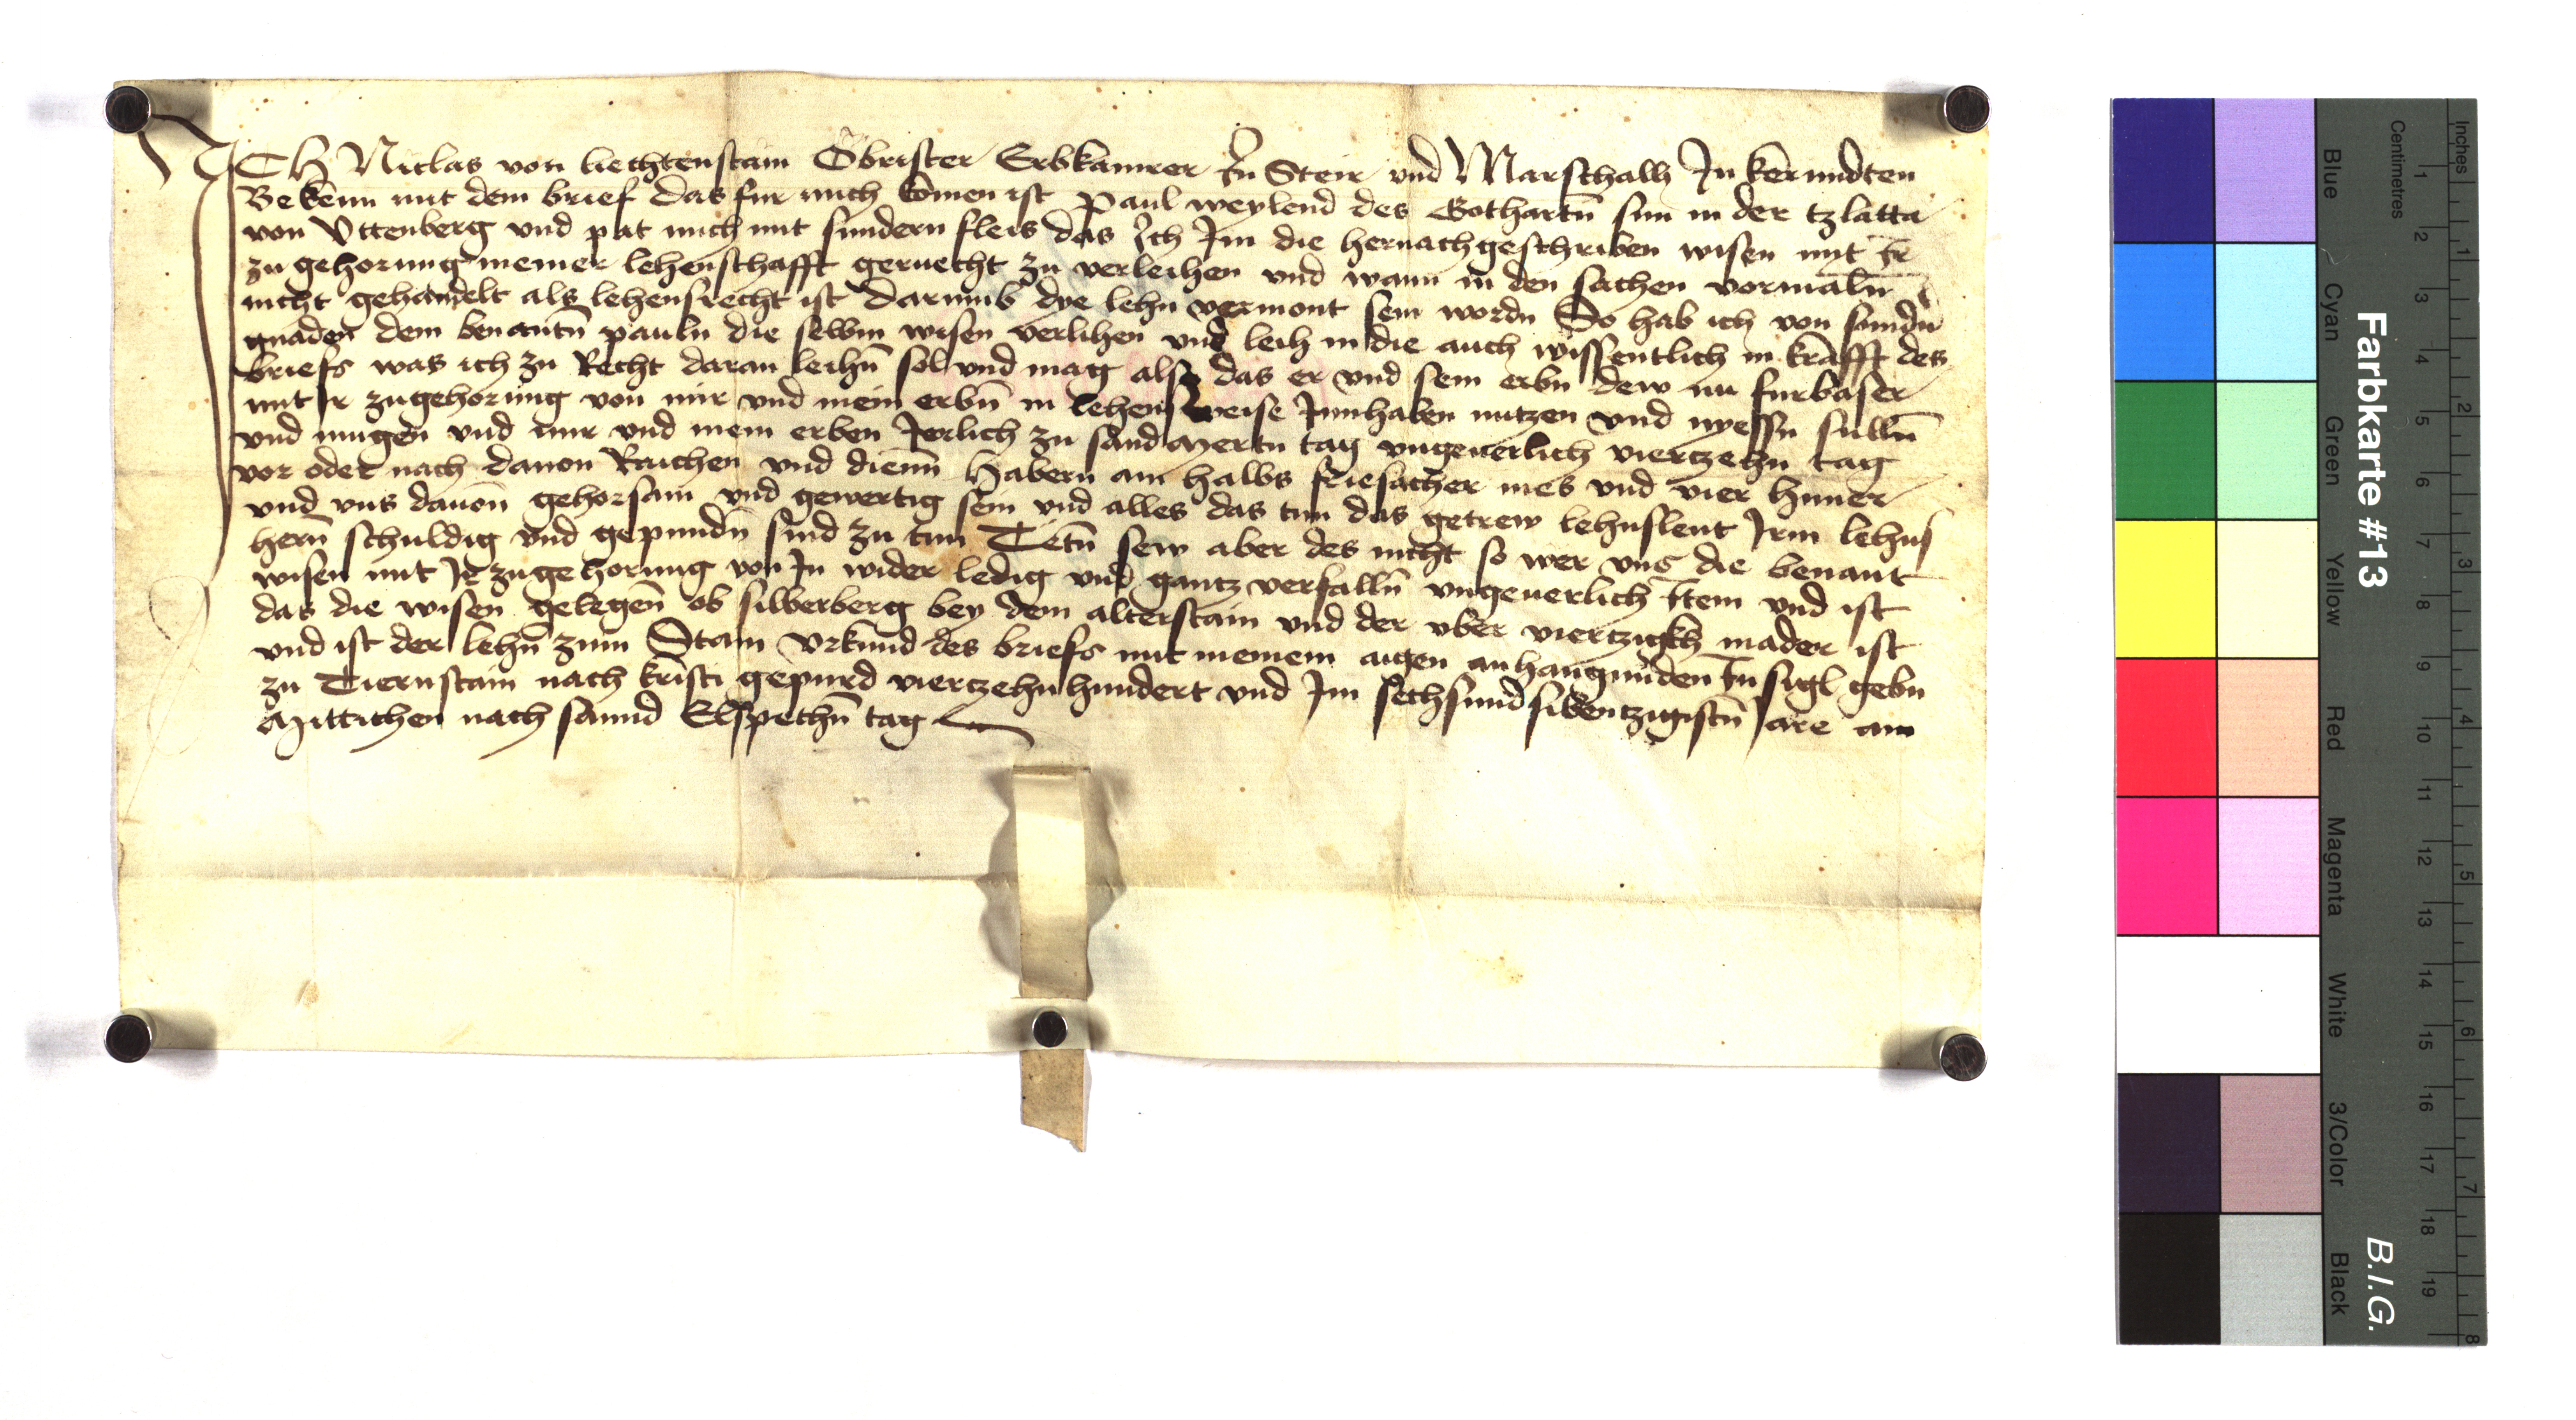 ICH Niclas von liechtenstain Obrister Erbkamrer In Steir vnd Marschalh In kernndten
Bekenn mit dem brief das fur mich komen ist Paul weylend des Gothartn sun in der tzlatta
von Vttenberg vnd pat mich mit sundern fleis das Ich Im die hernachgeschriben wisen mit Ir
zugehorung meiner lehenschafft geruecht zu verleihen vnd wann in den sachen vormaln
nicht gehandelt als lehensrecht ist darumb dye lehn vermont sein wordn So hab ich von sundn
gnaden dem benantn pauln die selbm wisen verlihen vnd leih in die auch wissentlich in krafft des
briefs was ich zu Recht daran leihn sol vnd mag also das er vnd sein erbn dew nu furbaser
mit Ir zugehorung von mir vnd mein erbn in lehensweise Innhaben nutzen vnd nyessn sulln
vnd mugen vnd mir vnd mein erben Jerlich zu sand Mertn tag vngeuerlich viertzehn tag
vor oder nach dauon Raichen vnd dienn Habern ain halbs friesacher mes vnd vier huner
vnd vns dauon gehorsam vnd gewertig sein vnd alles das tun das getrew lehnslent Irm lehns
hern schuldig vnd gepundn sind zu tun Tetn sew aber des nicht so wer vns die benant
wisen mit Ir zugehorung von In wider ledig vnd gantz verfalln vngeuerlich Item vnd ist
das die wisen gelegen ob silberberg bey dem alterstain vnd der vber viertzigkh mader ist
vnd ist der lehn zum Stain Vrkund des briefs mit meinem aigen anhangunden In sigl gebn
zu Tiernstain nach kristi gepurd viertzehnhundert vnd Im sechsundsibentzigistn Jare am
Mittichen nach sannd Elspethn tag
Farbkarte #13
B.I.G.
Centimetres
Inches
Blue
Cyan
Green
Yellow
Red
Magenta
White
3/Color
Black
1 2 3 4 5 6 7 8 9 10 11 12 13 14 15 16 17 18 19
1 2 3 4 5 6 7 8